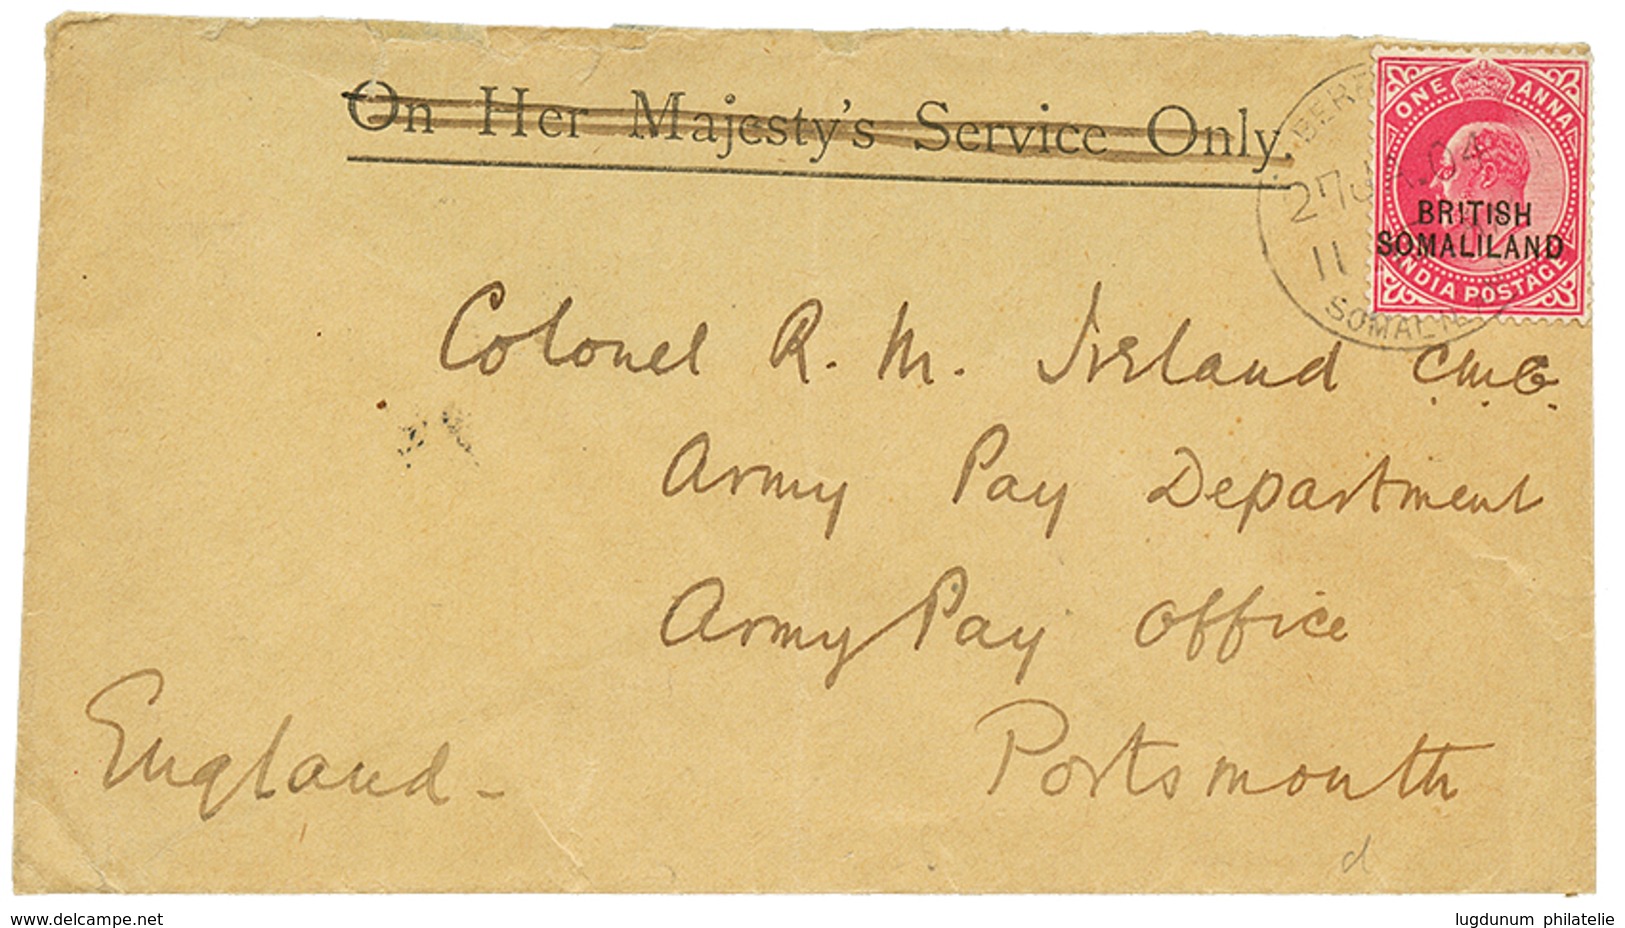 On Her Majesty's Service Only.
ONE ANNA
BRITISH
SOMALILAND
INDIA POSTAGE
04
11
Colonel R. M. Ireland C.M.G.
Army Pay Department
Army Pay Office
England - Portsmouth
d
www.delcampe.net
lugdunum philatelie